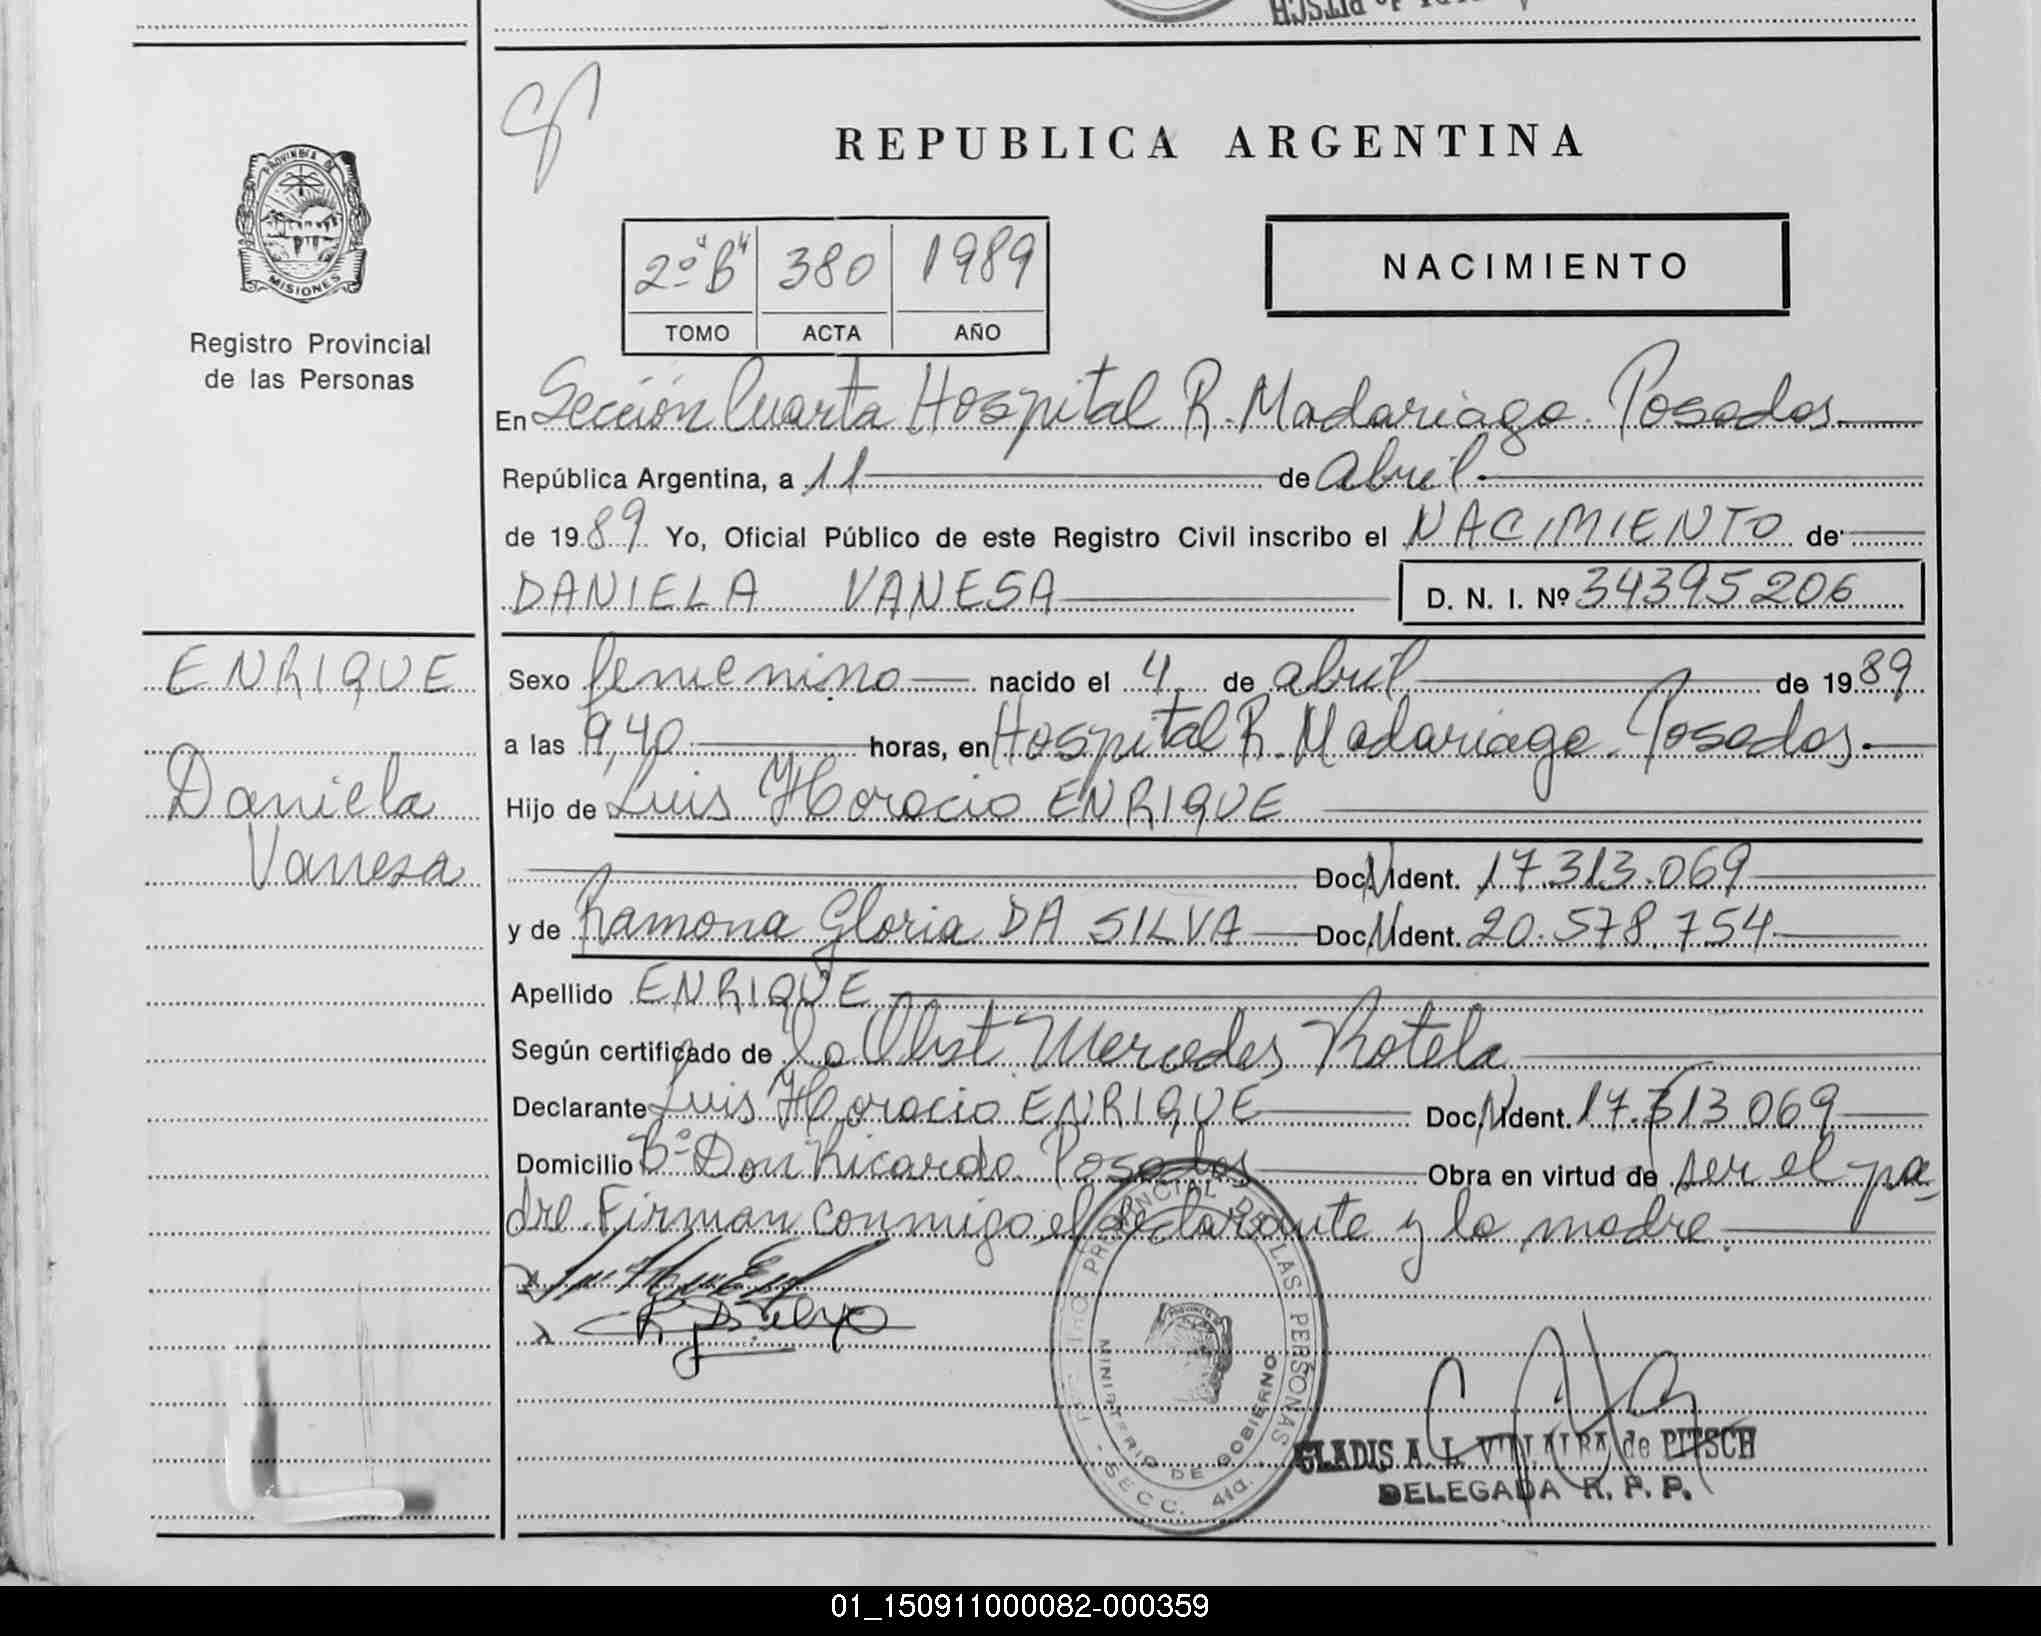 REPUBLICA ARGENTINA
PROVINCIA DE
MISIONES
Registro Provincial
de las Personas
2º "B" 380 1989
TOMO ACTA AÑO
NACIMIENTO
En Sección Cuarta Hospital R. Madariaga. Posadas.
República Argentina, a 11 de abril.
de 1989 Yo, Oficial Público de este Registro Civil inscribo el NACIMIENTO de
DANIELA VANESA D. N. I. Nº 34395206
ENRIQUE
Daniela
Vanesa
Sexo femenino nacido el 4 de abril de 1989
a las 9,40 horas, en Hospital R. Madariaga. Posadas.
Hijo de Luis Horacio ENRIQUE
Doc. N Ident. 17.313.069
y de Ramona Gloria DA SILVA Doc. N Ident. 20.578.754
Apellido ENRIQUE
Según certificado de la Obst. Mercedes Rotela
Declarante Luis Horacio ENRIQUE Doc. N Ident. 17.313.069
Domicilio Bº Don Ricardo. Posadas Obra en virtud de ser el pa-
dre. Firman conmigo el declarante y la madre.
PROVINCIAL DE LAS PERSONAS
MINISTERIO DE GOBIERNO
SECC. 4ta.
GLADIS A. L. de PITSCH
DELEGADA R. P. P.
01_150911000082-000359